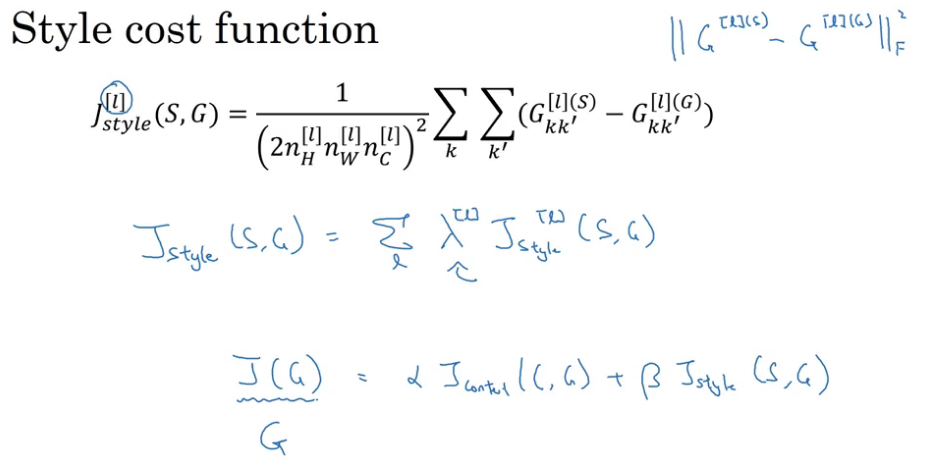 Style cost function
|| G^{[l](S)} - G^{[l](G)} ||_F^2
J_{style}^{[l]}(S, G) = \frac{1}{(2n_H^{[l]} n_W^{[l]} n_C^{[l]})^2} \sum_k \sum_{k'} (G_{kk'}^{[l](S)} - G_{kk'}^{[l](G)})
J_{style}(S,G) = \sum_l λ^{[l]} J_{style}^{[l]}(S,G)
J(G) = α J_{content}(C,G) + β J_{style}(S,G)
G